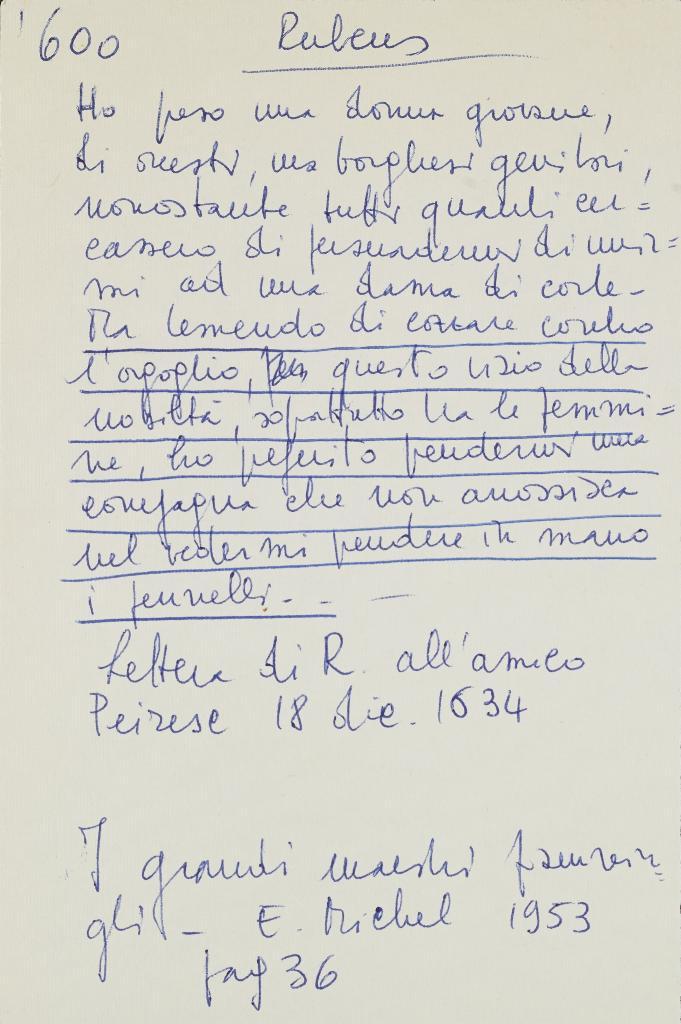 '600 Rubens
Ho preso una donna giovane,
di onesti, ma borghesi genitori,
nonostante tutti quanti cer=
cassero di persuadermi di unir=
mi ad una dama di corte -
Ma temendo di cozzare contro
l'orgoglio, questo vizio della
nobiltà, soprattutto tra le femmi=
ne, ho preferito prendermi una
compagna che non arrossisca
nel vedermi prendere in mano
i pennelli - - -
Lettera di R. all'amico
Peiresc 18 dic. 1634
I grandi maestri fiammin=
ghi - E. Michel 1953
pag 36